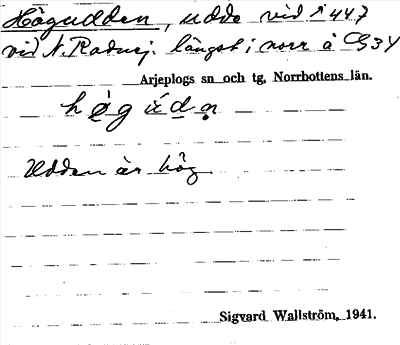 Högudden, udde vid s 447
vid N. Raduej. längst i norr å CS 34
Arjeplogs sn och tg, Norrbottens län.
högúdn
Udden är hög
Sigvard Wallström, 1941.